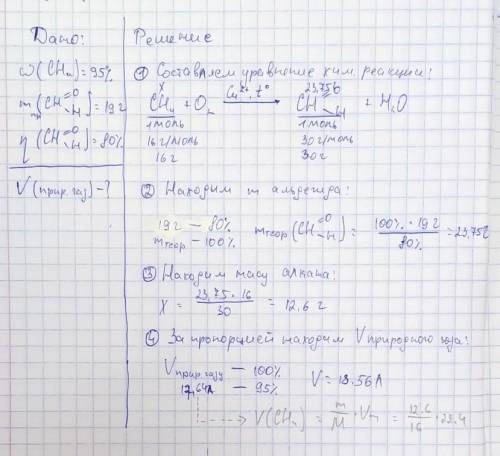 Дано:
ω(CH₄)=95%
m пр (CH =O -H)=19 г
η (CH =O -H)=80%
V(прир. газ)-?
Решение
① Составляем уравнение хим. реакции:
x 23,75г
CH₄ + O₂ Cu²⁺, t° → CH =O -H + H₂O
1 моль 1 моль
16 г/моль 30 г/моль
16 г 30 г
② Находим m альдегида:
19 г — 80%
m теор — 100%
m теор (CH =O -H) = 100% · 19 г / 80% = 23,75г
③ Находим масу алкана:
X = 23,75 · 16 / 30 = 12,6 г
④ За пропорцией находим V природного газа:
V прир. газу — 100%
17,64л — 95%
V = 18.56л
V(CH₄) = m/M · Vm = 12.6/16 · 22.4